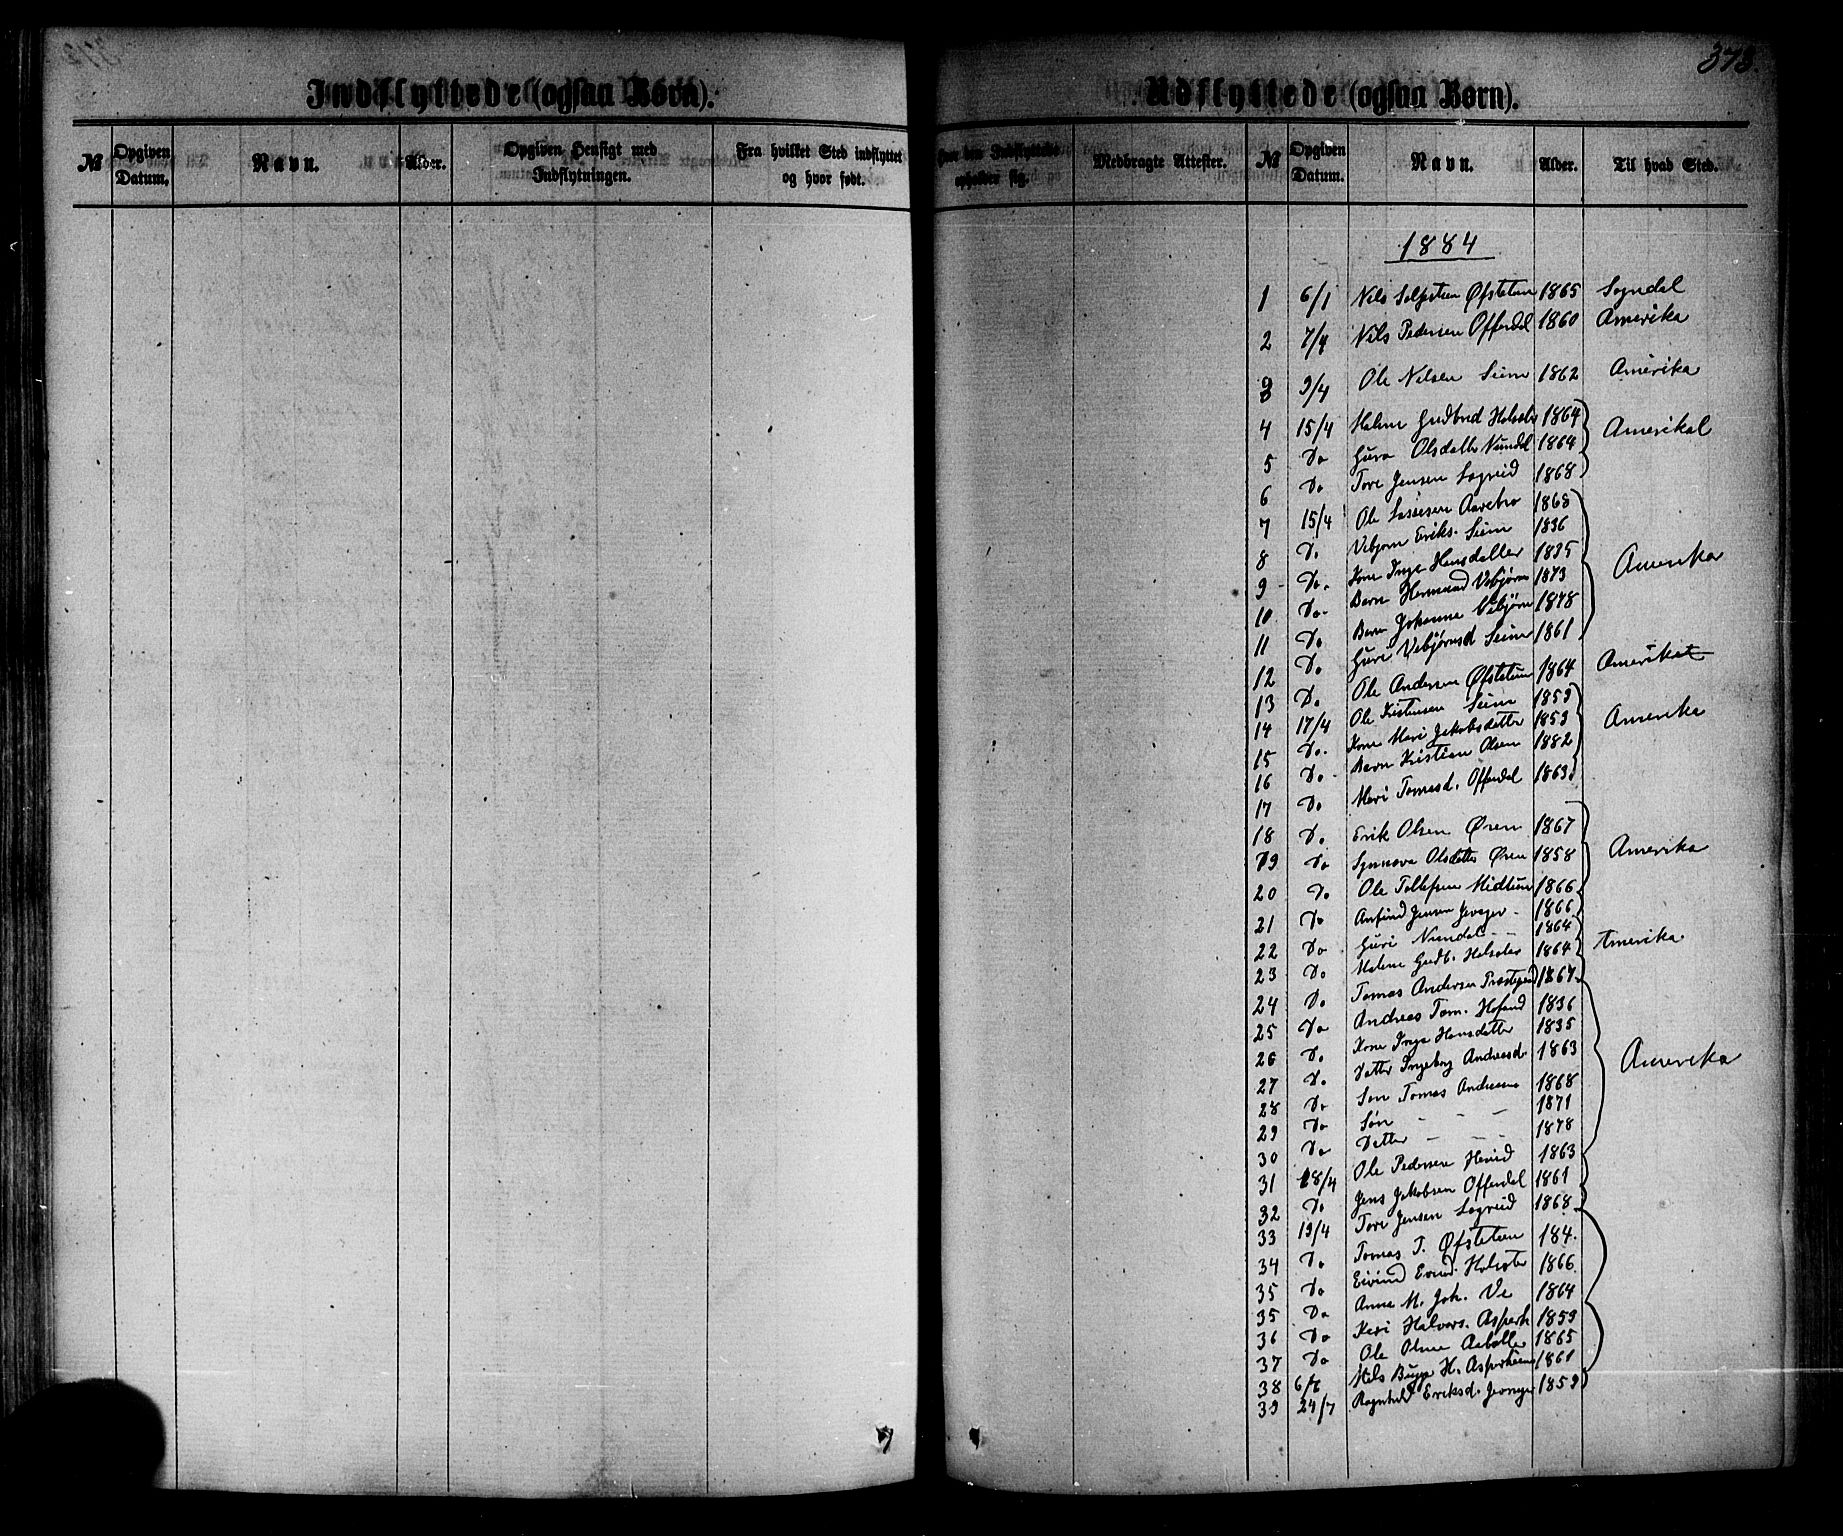 373.
Indflyttede (ogsaa Børn).
Udflyttede (ogsaa Børn).
№ Opgiven Datum. Navn. Alder. Opgiven Hensigt med Indflytningen. Fra hvilket Sted indflyttet og hvor født.
Medbragte Attester. № Opgiven Datum. Navn. Alder. Til hvad Sted.
1884
1 6/1 Nils 1865 Sogndal
2 7/4 Nils Pedersen Offerdal 1860 Amerika
3 9/4 Ole Nilsen Seim 1862 Amerika
4 15/4 Malene Gudbrd 1864 Amerika
5 Do Guro Olsdatter Nundal 1864
6 Do Tore Jensen Lægreid 1868
7 15/4 Ole Lassesen Aarebro 1868
8 Do. Vibjørn Eriks. Seim 1836
9 Do. Kone Inga Hansdatter 1835 Amerika
10 Do. Barn Hermund Vibjørns 1873
11 Do Barn Johanne Vibjørn 1878
12 Do Guri Vibjørnsd Seim 1861
13 Do. Ole Andersen Øfstetun 1864 Amerika
14 17/4 Ole Kristensen Seim 1859
15 Do. Kone Mari Jakobsdatter 1859 Amerika
16 Do. Barn Kristian Olsen 1882
17 Do Mari Tomasd. Offerdal 1863
18 Do. Erik Olsen Øren 1867
19 Do Synnøva Olsdatter Øren 1858 Amerika
20 Do Ole Tollefsen Midtun 1866
21 Do Anfind Jensen 1866
22 Do Guri Nundal 1864 Amerika
23 Do. Malene Gudb. 1864
24 Do. Tomas Andersen 1867
25 Do Andreas Tom. Hofland 1836
26 Do. Kone Inga Hansdatter 1835
27 Do. Datter Ingeborg Andreasd. 1863 Amerika
28 Do Søn Tomas Andreasen 1868
29 Do Søn - - - 1871
30 Do Datter - - - 1878
31 18/4 Ole Pedersen 1863
32 Do Jens Jakobsen Offerdal 1861
33 19/4 Tore Jensen Lægreid 1868
34 Do Tomas T. Øfstetun 184.
35 Do Eivind 1866.
35 Do Anna M. Joh. Ve 1864
36 Do Kari Halvors. 1859
37 Do Ole Olsen 1865
38 Nils Bugge H. 1861
39 24/7 Ragnhild Eriksd. 1859